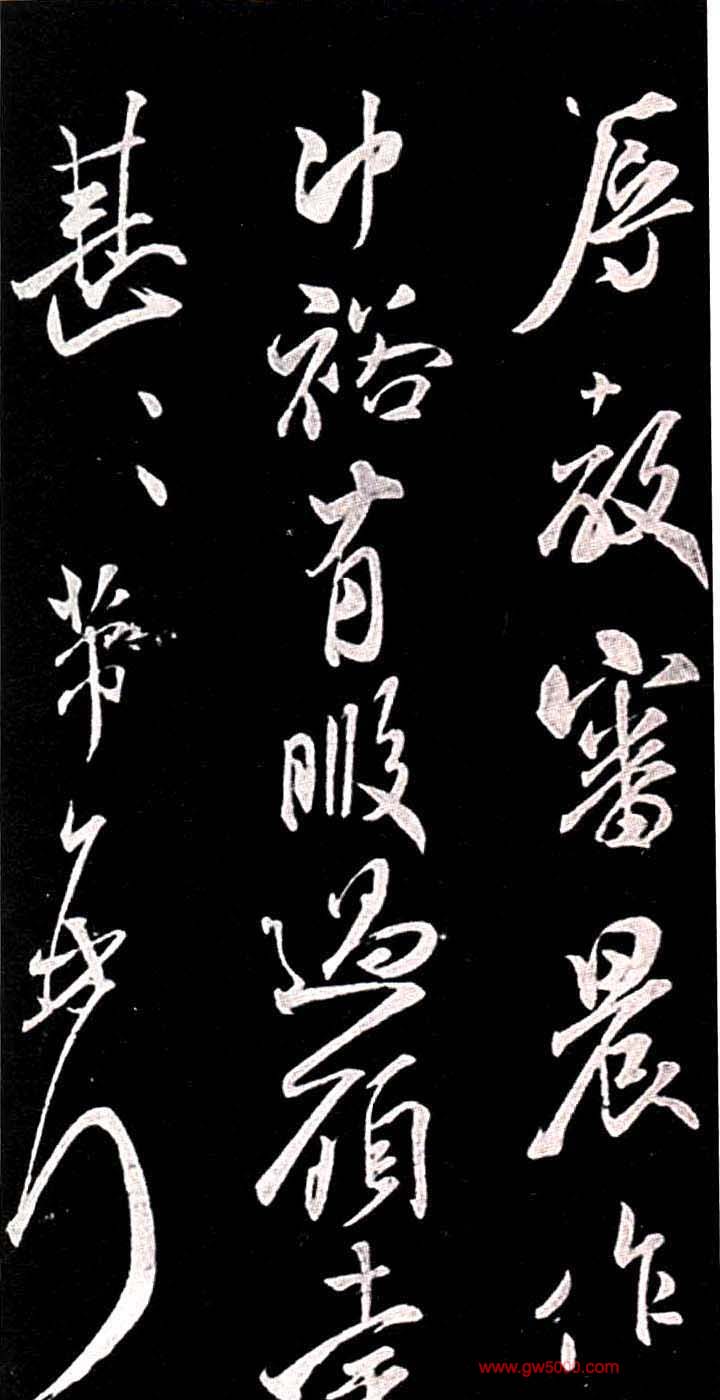 辱教審晨作
冲裕有暇過顧幸
甚〻芾頓首
www.gw5000.com